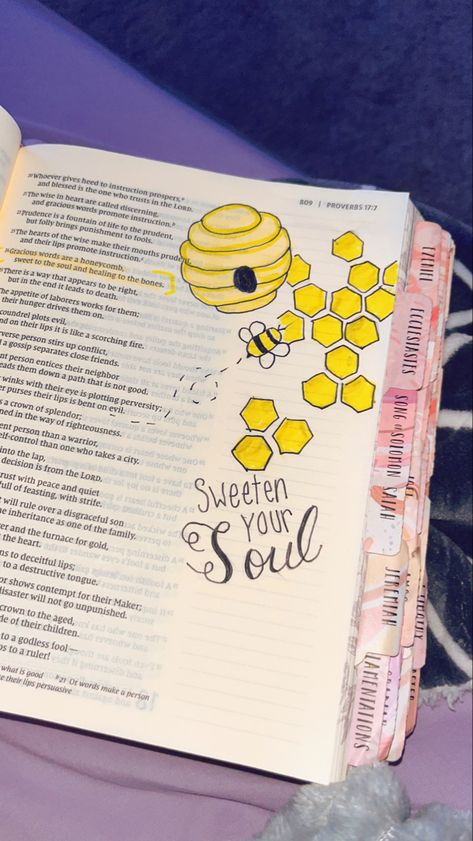 809 | PROVERBS 17:7
20 Whoever gives heed to instruction prospers,
and blessed is the one who trusts in the LORD.
21 The wise in heart are called discerning,
and gracious words promote instruction.
22 Prudence is a fountain of life to the prudent,
but folly brings punishment to fools.
23 The hearts of the wise make their mouths prudent,
and their lips promote instruction.
24 Gracious words are a honeycomb,
sweet to the soul and healing to the bones.
25 There is a way that appears to be right,
but in the end it leads to death.
The appetite of laborers works for them;
their hunger drives them on.
scoundrel plots evil,
and on their lips it is like a scorching fire.
verse person stirs up conflict,
a gossip separates close friends.
nt person entices their neighbor
eads them down a path that is not good.
winks with their eye is plotting perversity;
r purses their lips is bent on evil.
s a crown of splendor;
ned in the way of righteousness.
ent person than a warrior,
elf-control than one who takes a city.
into the lap,
decision is from the LORD.
rust with peace and quiet
full of feasting, with strife.
t will rule over a disgraceful son
he inheritance as one of the family.
er and the furnace for gold,
the heart.
ns to deceitful lips;
s to a destructive tongue.
or shows contempt for their Maker;
disaster will not go unpunished.
crown to the aged,
de of their children.
to a godless fool—
ps to a ruler!
what is good
21 Or words make a person
e their lips persuasive
Sweeten
your
Soul
EZEKIEL
ECCLESIASTES
SONG OF SOLOMON
ISAIAH
JEREMIAH
LAMENTATIONS